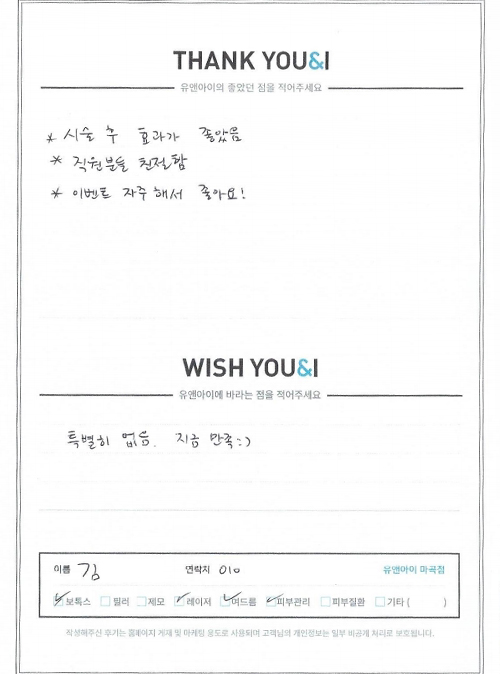 THANK YOU&I
유앤아이의 좋았던 점을 적어주세요
* 시술 후 효과가 좋았음
* 직원분들 친절함
* 이벤트 자주 해서 좋아요!
WISH YOU&I
유앤아이에 바라는 점을 적어주세요
특별히 없음. 지금 만족:)
이름 김 연락처 010 유앤아이 마곡점
보톡스 필러 제모 레이저 여드름 피부관리 피부질환 기타 ( )
작성해주신 후기는 홈페이지 게재 및 마케팅 용도로 사용되며 고객님의 개인정보는 일부 비공개 처리로 보호됩니다.